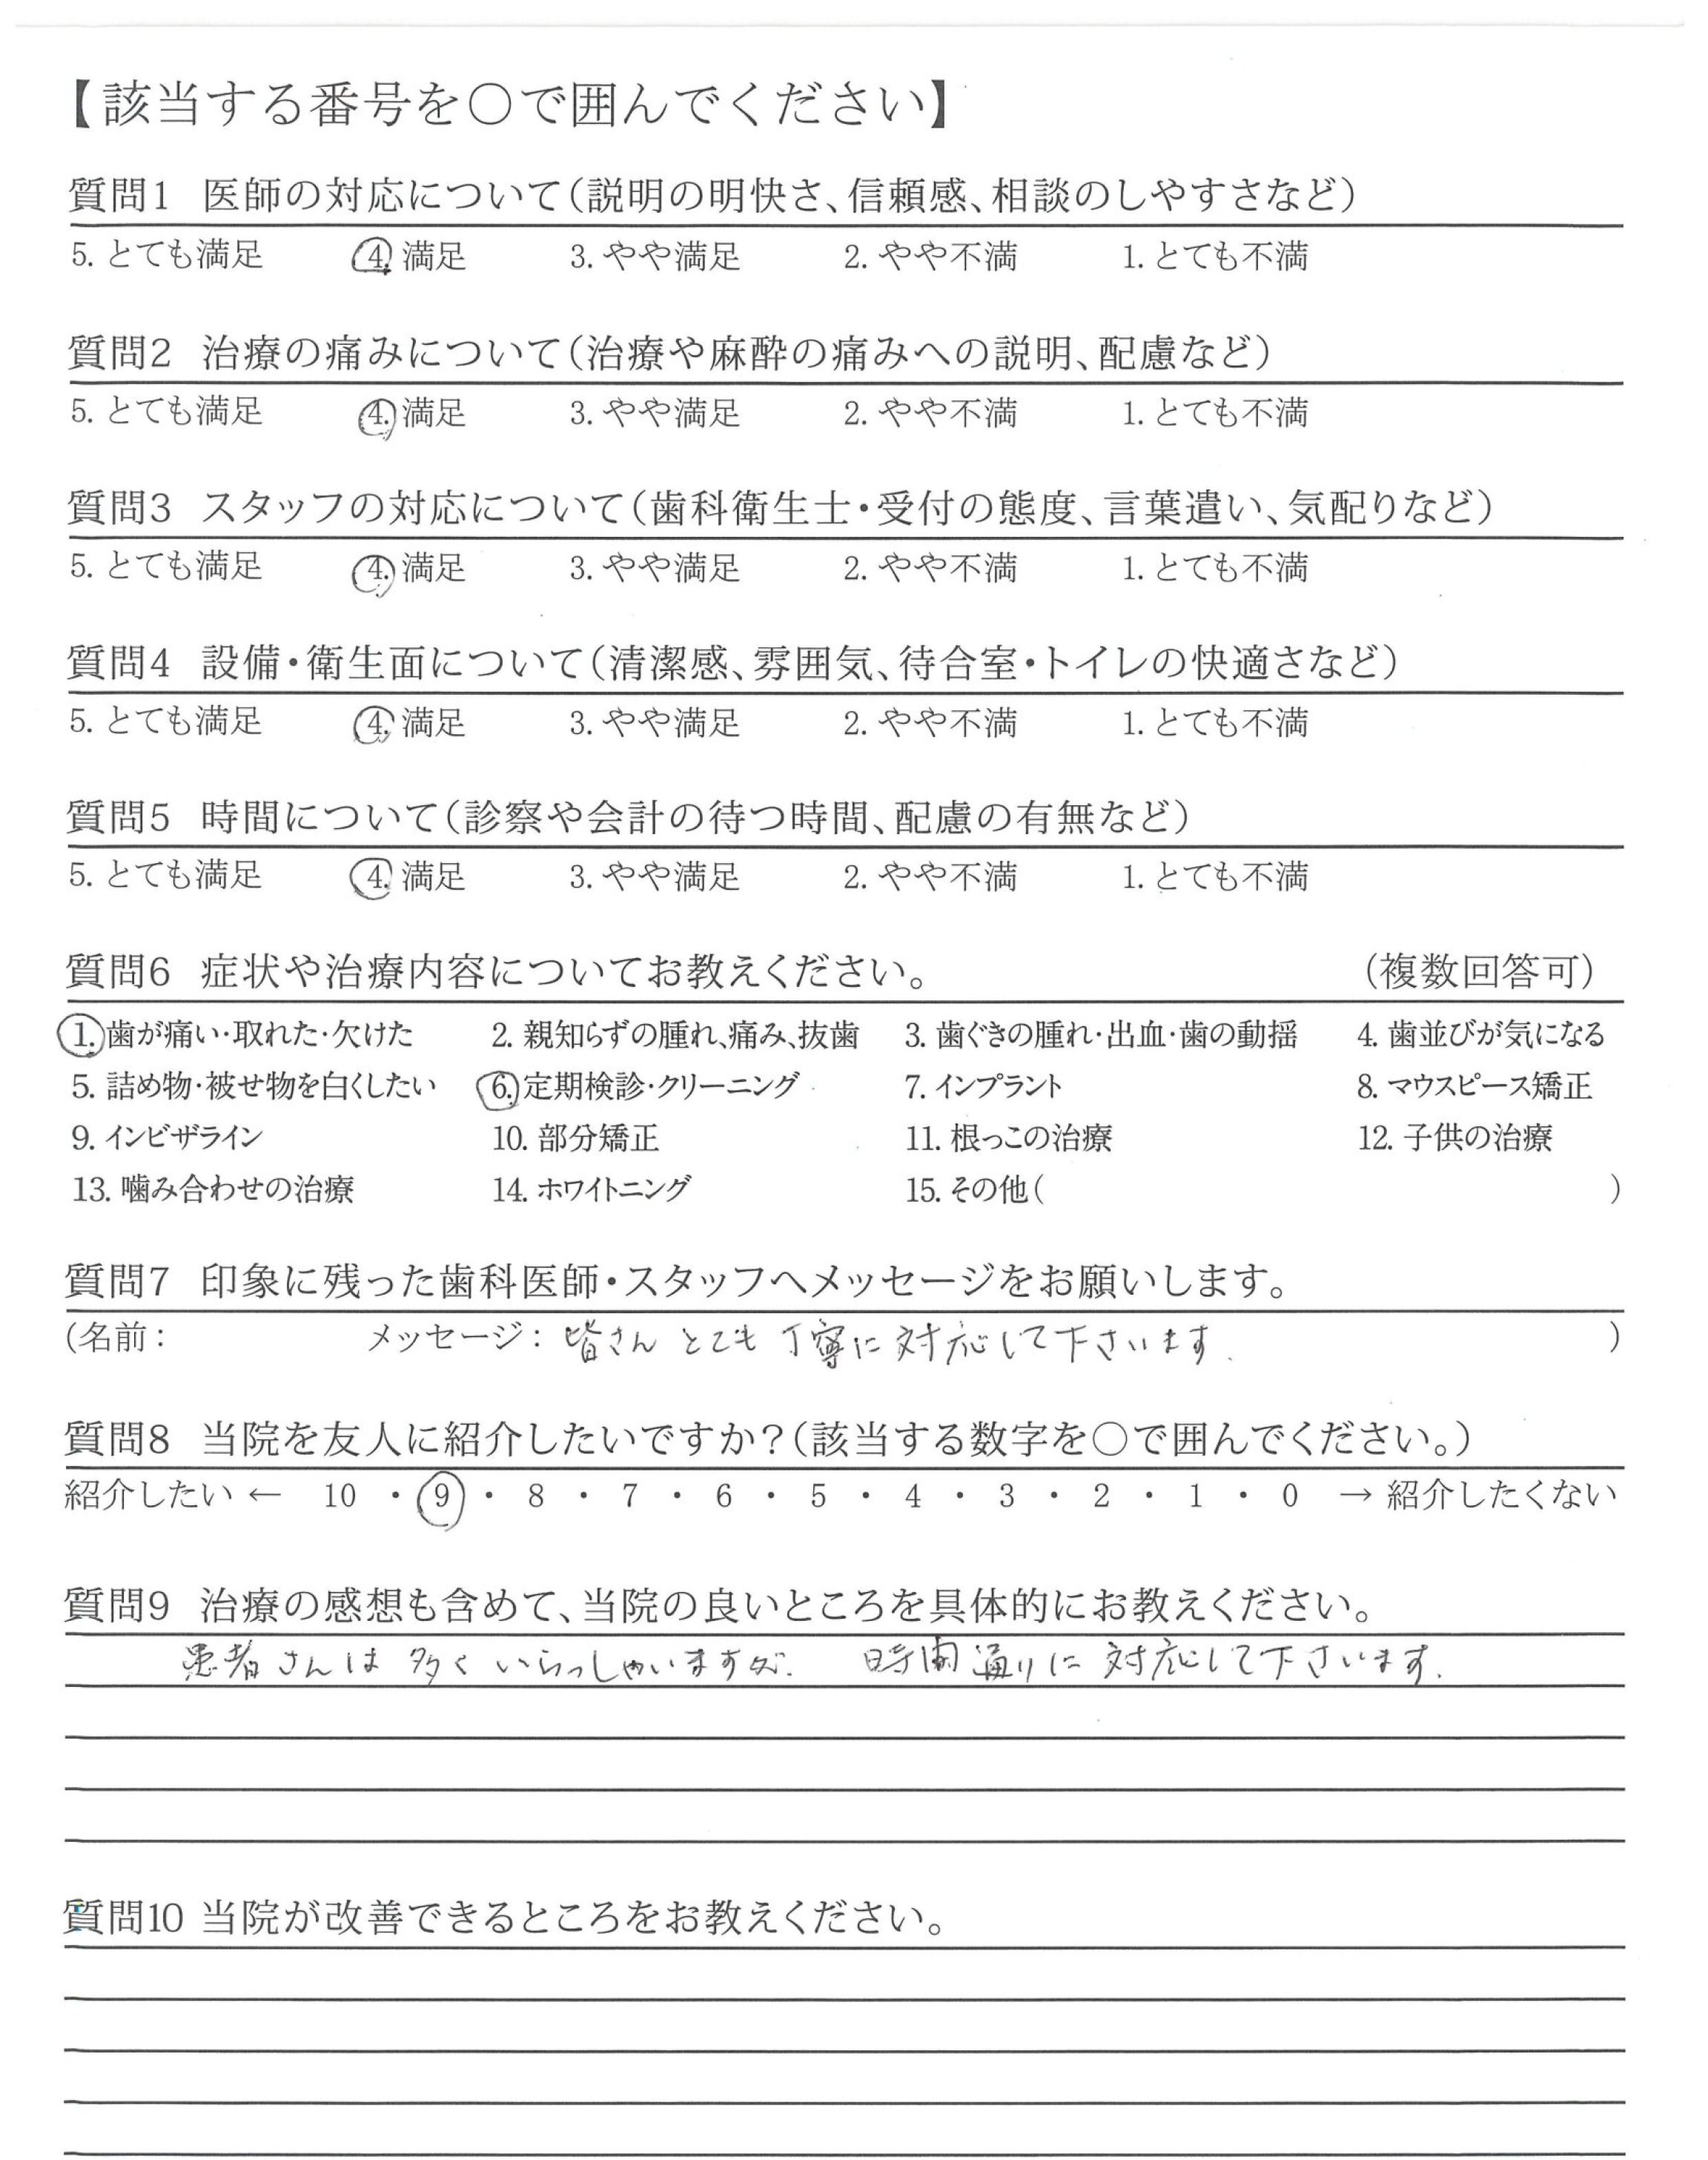 【該当する番号を〇で囲んでください】
質問1 医師の対応について(説明の明快さ、信頼感、相談のしやすさなど)
5. とても満足 4. 満足 3. やや満足 2. やや不満 1. とても不満
質問2 治療の痛みについて(治療や麻酔の痛みへの説明、配慮など)
5. とても満足 4. 満足 3. やや満足 2. やや不満 1. とても不満
質問3 スタッフの対応について(歯科衛生士・受付の態度、言葉遣い、気配りなど)
5. とても満足 4. 満足 3. やや満足 2. やや不満 1. とても不満
質問4 設備・衛生面について(清潔感、雰囲気、待合室・トイレの快適さなど)
5. とても満足 4. 満足 3. やや満足 2. やや不満 1. とても不満
質問5 時間について(診察や会計の待つ時間、配慮の有無など)
5. とても満足 4. 満足 3. やや満足 2. やや不満 1. とても不満
質問6 症状や治療内容についてお教えください。 (複数回答可)
1. 歯が痛い・取れた・欠けた 2. 親知らずの腫れ、痛み、抜歯 3. 歯ぐきの腫れ・出血・歯の動揺 4. 歯並びが気になる
5. 詰め物・被せ物を白くしたい 6. 定期検診・クリーニング 7. インプラント 8. マウスピース矯正
9. インビザライン 10. 部分矯正 11. 根っこの治療 12. 子供の治療
13. 噛み合わせの治療 14. ホワイトニング 15. その他( )
質問7 印象に残った歯科医師・スタッフへメッセージをお願いします。
(名前: メッセージ: 皆さん とても 丁寧に 対応して下さいます. )
質問8 当院を友人に紹介したいですか?(該当する数字を〇で囲んでください。)
紹介したい ← 10 ・ 9 ・ 8 ・ 7 ・ 6 ・ 5 ・ 4 ・ 3 ・ 2 ・ 1 ・ 0 → 紹介したくない
質問9 治療の感想も含めて、当院の良いところを具体的にお教えください。
患者さんは 多く いらっしゃいますが. 時間通りに 対応して下さいます.
質問10 当院が改善できるところをお教えください。